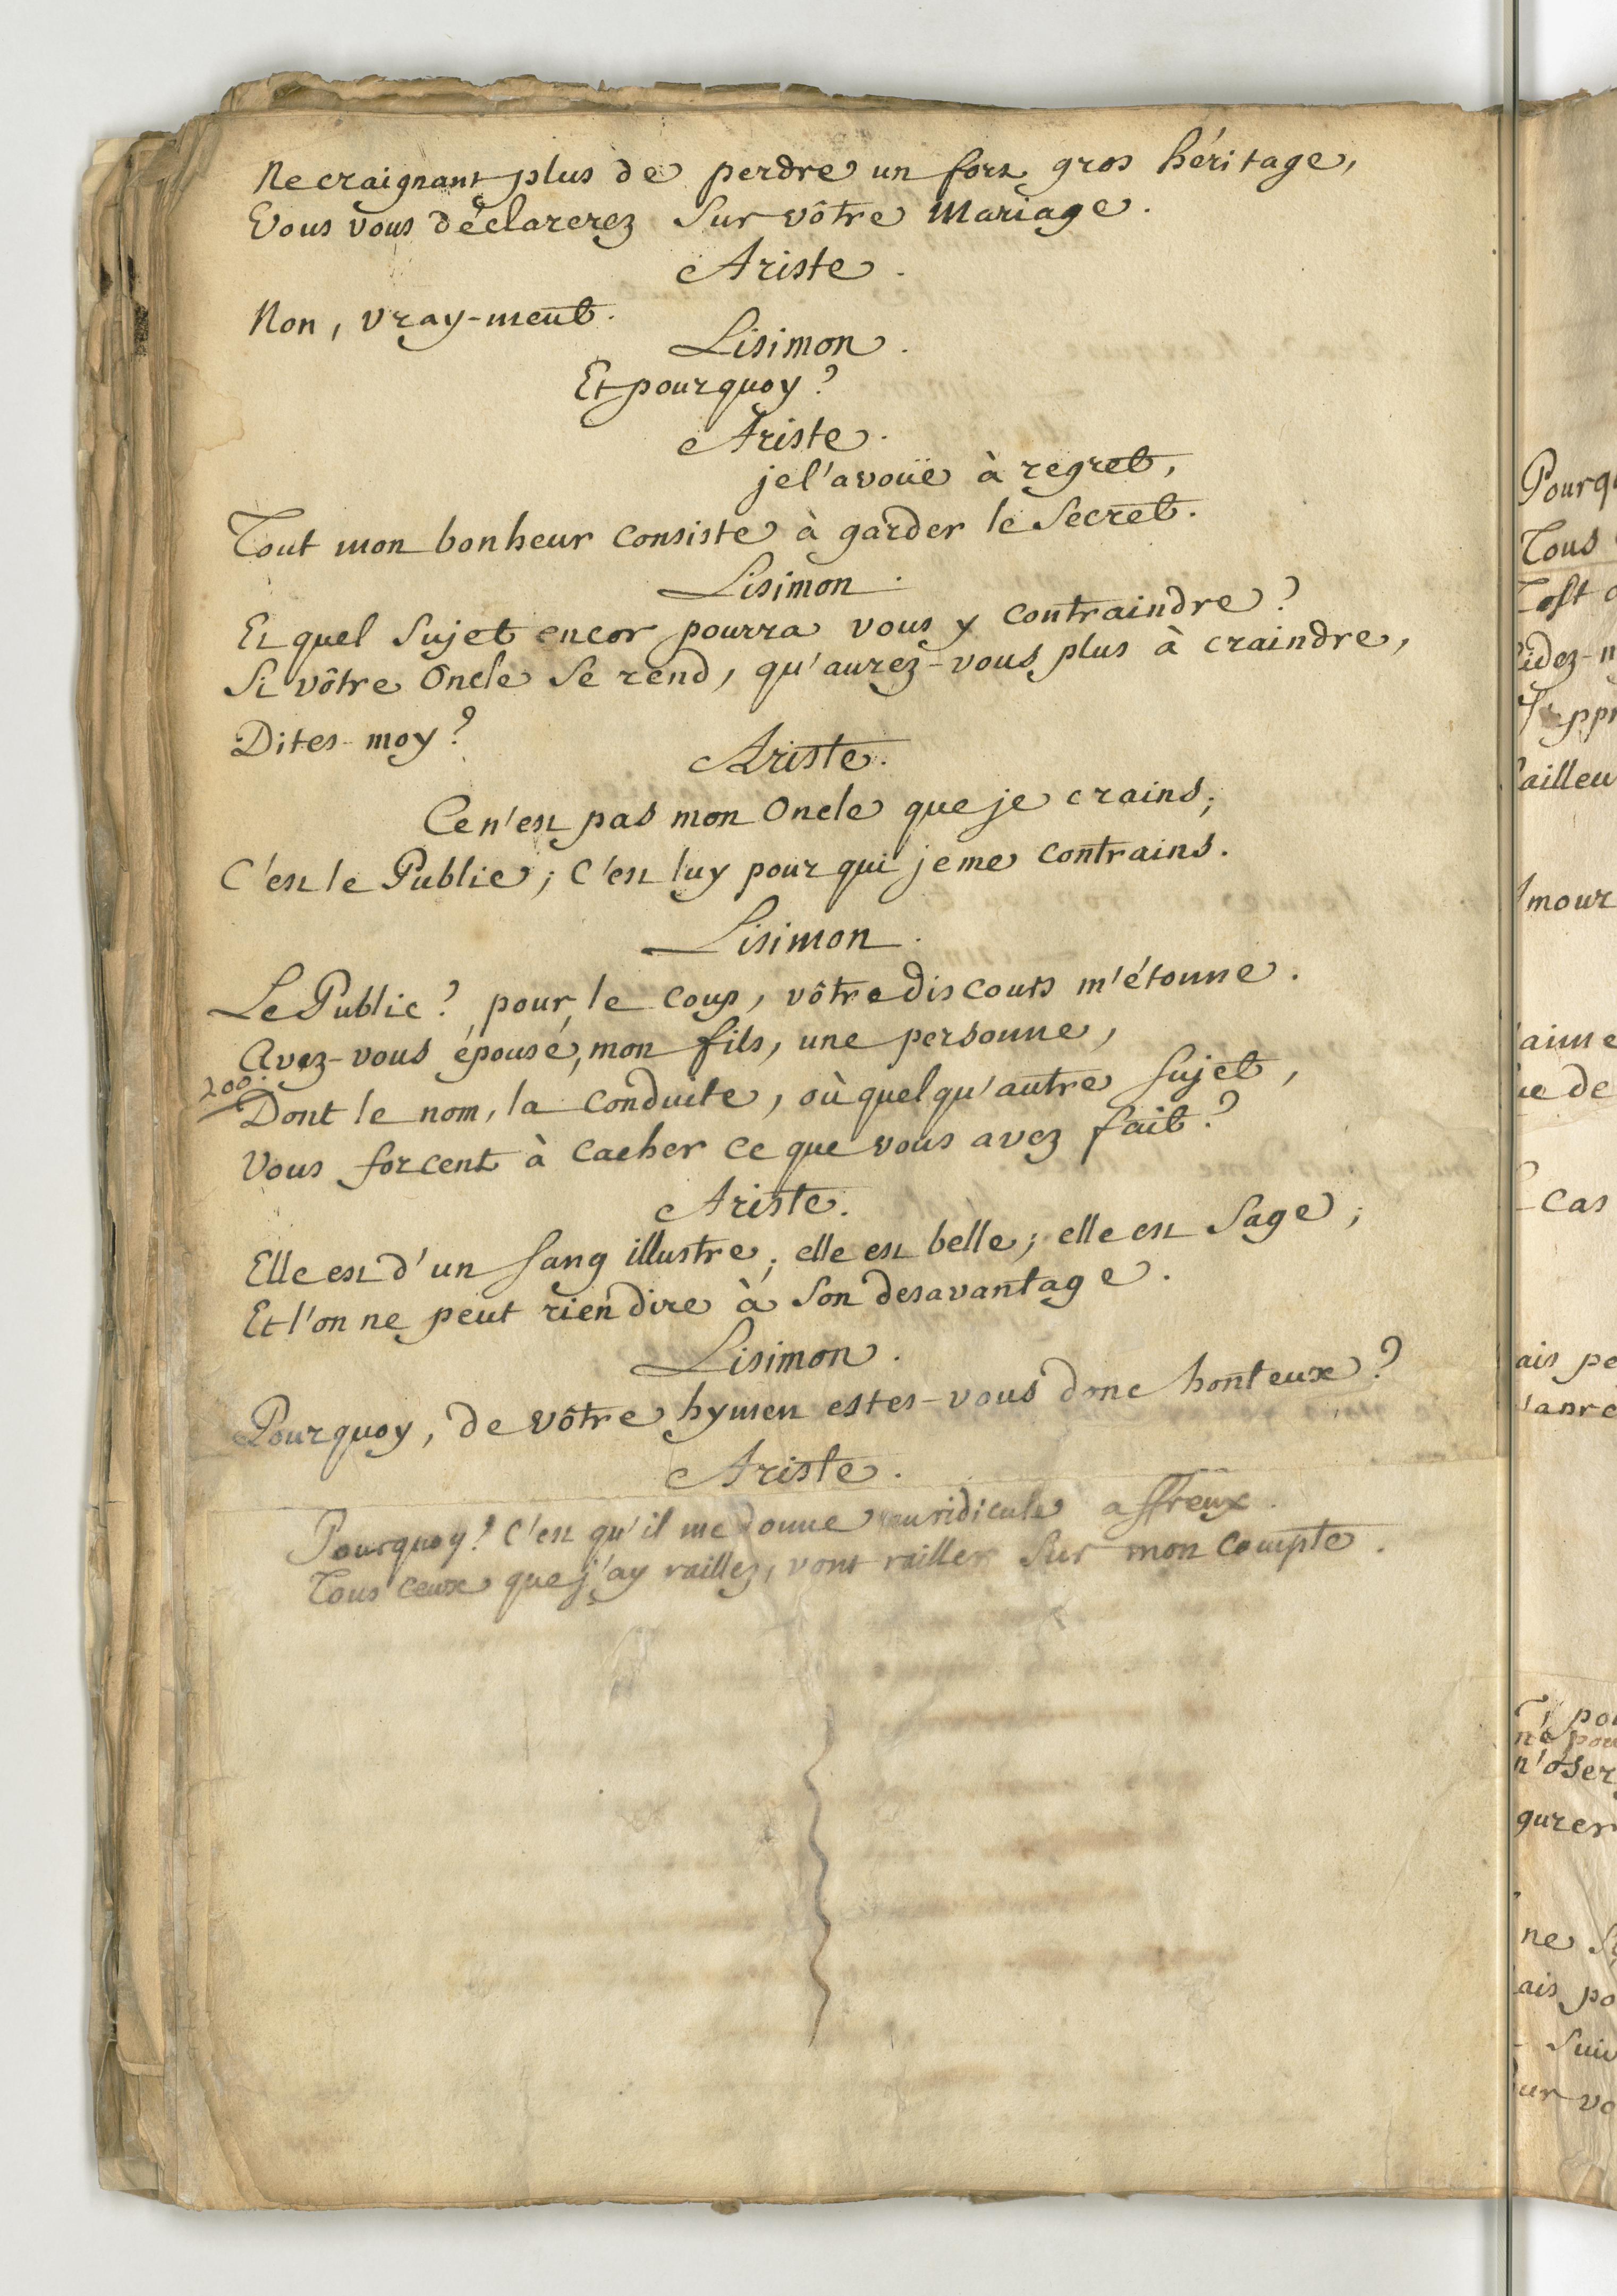 Ne craignant plus de perdre un fort gros héritage,
Vous vous déclarerez Sur vôtre Mariage.
Ariste.
Non, vray-ment.
Lisimon.
Et pourquoy?
Ariste.
je l'avoüe à regret,
Tout mon bonheur Consiste à garder le Secret.
Lisimon.
Et quel Sujet encor pourra vous y Contraindre?
Si vôtre Oncle Se rend, qu'aurez-vous plus à craindre,
Dites-moy?
Ariste.
Ce n'est pas mon Oncle que je crains;
C'est le Public; C'est luy pour qui je me Contrains.
Lisimon.
Le Public? pour le Coup, vôtre discours m'étonne.
Avez-vous épousé, mon fils, une personne,
200.
Dont le nom, la Conduite, où quelqu'autre Sujet,
Vous forcent à Cacher Ce que vous avez fait?
Ariste.
Elle est d'un Sang illustre; elle est belle; elle est Sage;
Et l'on ne peut rien dire à Son desavantage.
Lisimon.
Pourquoy, de vôtre hymen estes-vous donc honteux?
Ariste.
Pourquoy? C'est qu'il me donne un ridicule affreux.
Tous Ceux que j'ay raillez, vont railler Sur mon Compte.
Pourqu
Tous
idez-n
ailleu
mour
aime
ue de
Cas
ais pe
n'oser
gurer
ne
ais po
Suiv
ur vo